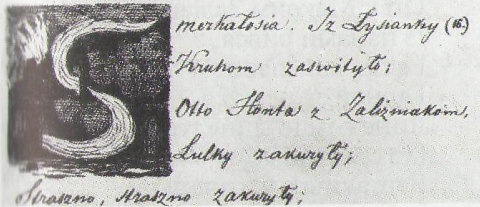 Smerkałosia. Iz Łysianky (16.)
Kruhom zaswityło;
Otto Honta z Zalizniakom,
Lulky zakuryły;
Straszno, straszno zakuryły;